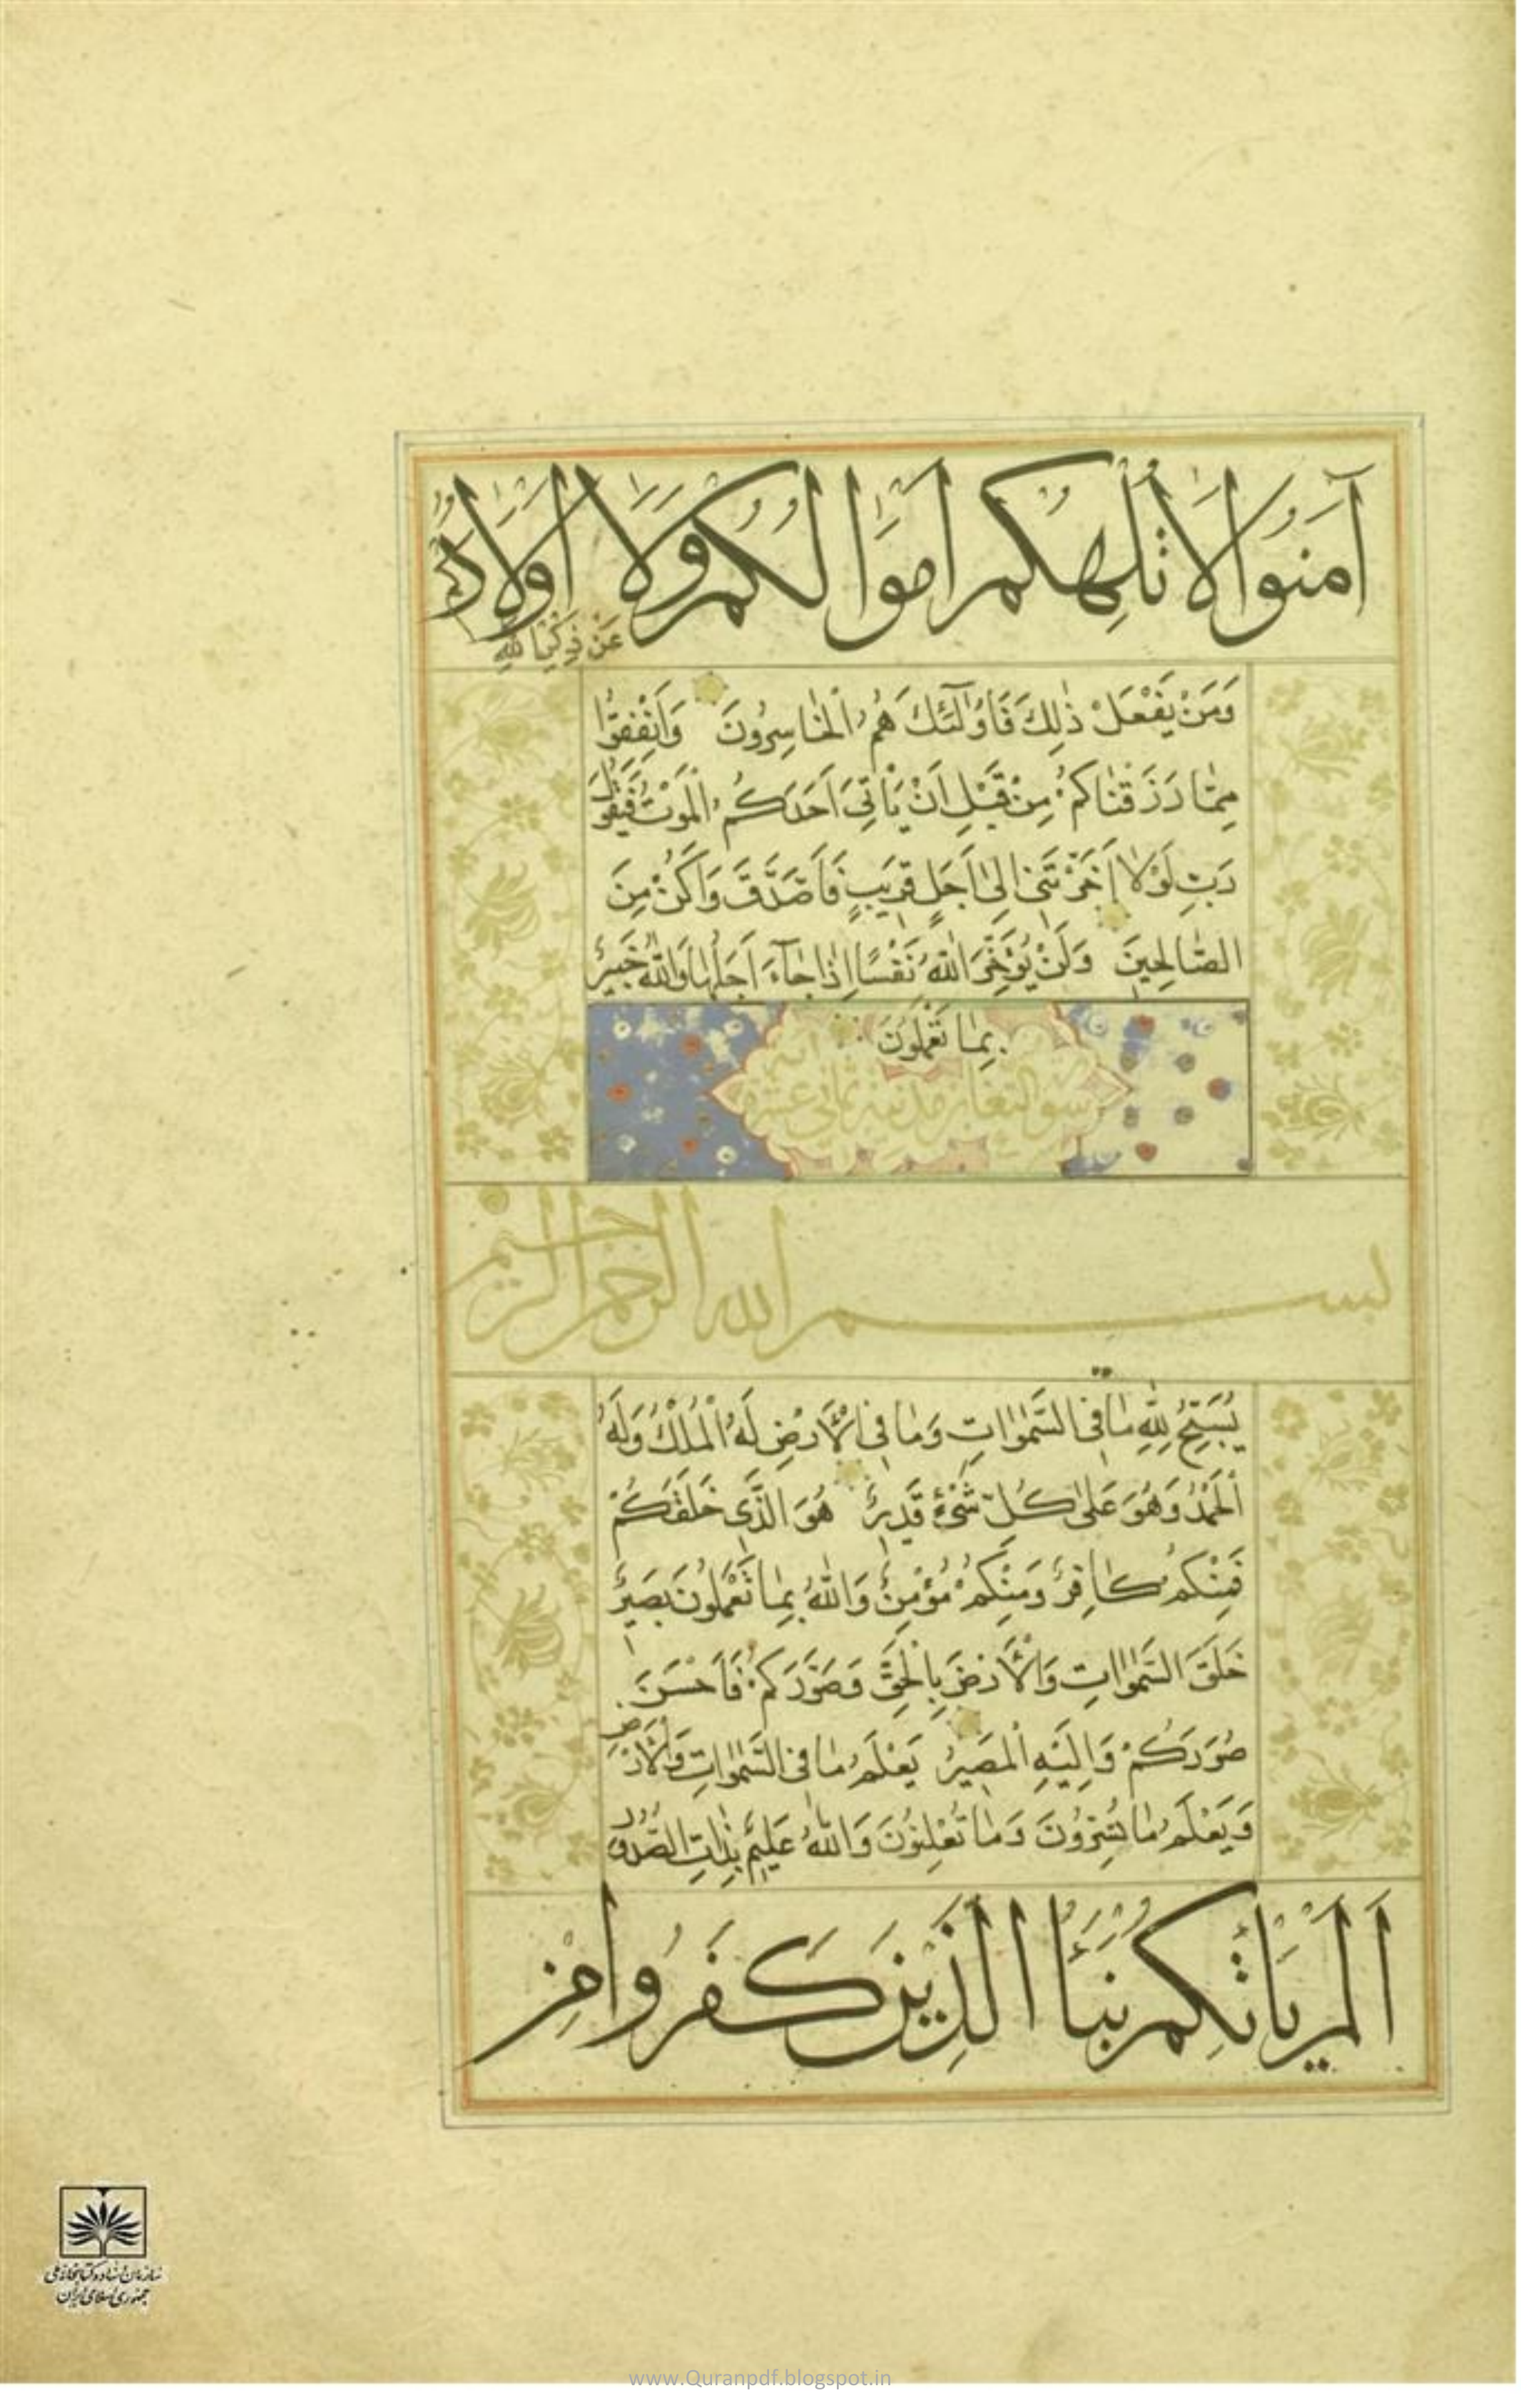 آمَنُوا لَا تُلْهِكُمْ أَمْوَالُكُمْ وَلَا أَوْلَادُكُمْ
عَنْ ذِكْرِ اللّٰهِ
وَمَنْ يَفْعَلْ ذٰلِكَ فَاُولٰٓئِكَ هُمُ الْخٰاسِرُونَ وَاَنْفِقُوا
مِمّٰا رَزَقْنٰاكُمْ مِنْ قَبْلِ اَنْ يَأْتِيَ اَحَدَكُمُ الْمَوْتُ فَيَقُولَ
رَبِّ لَوْلٰا اَخَّرْتَنِي اِلىٰ اَجَلٍ قَرِيبٍ فَاَصَّدَّقَ وَاَكُنْ مِنَ
الصّٰالِحِينَ وَلَنْ يُؤَخِّرَ اللّٰهُ نَفْسًا اِذٰا جٰٓاءَ اَجَلُهٰا وَاللّٰهُ خَبِيرٌ
بِمٰا تَعْمَلُونَ
سورة التغابن مدنية ثماني عشرة آية
بسم الله الرحمن الرحيم
يُسَبِّحُ لِلّٰهِ مٰا فِي السَّمٰوٰاتِ وَمٰا فِي الْاَرْضِ لَهُ الْمُلْكُ وَلَهُ
الْحَمْدُ وَهُوَ عَلىٰ كُلِّ شَيْءٍ قَدِيرٌ هُوَ الَّذِي خَلَقَكُمْ
فَمِنْكُمْ كٰافِرٌ وَمِنْكُمْ مُؤْمِنٌ وَاللّٰهُ بِمٰا تَعْمَلُونَ بَصِيرٌ
خَلَقَ السَّمٰوٰاتِ وَالْاَرْضَ بِالْحَقِّ وَصَوَّرَكُمْ فَاَحْسَنَ
صُوَرَكُمْ وَاِلَيْهِ الْمَصِيرُ يَعْلَمُ مٰا فِي السَّمٰوٰاتِ وَالْاَرْضِ
وَيَعْلَمُ مٰا تُسِرُّونَ وَمٰا تُعْلِنُونَ وَاللّٰهُ عَلِيمٌ بِذٰاتِ الصُّدُورِ
اَلَمْ يَأْتِكُمْ نَبَأُ الَّذِينَ كَفَرُوا مِنْ
سازمان اسناد و کتابخانه ملی
جمهوری اسلامی ایران
www.Quranpdf.blogspot.in